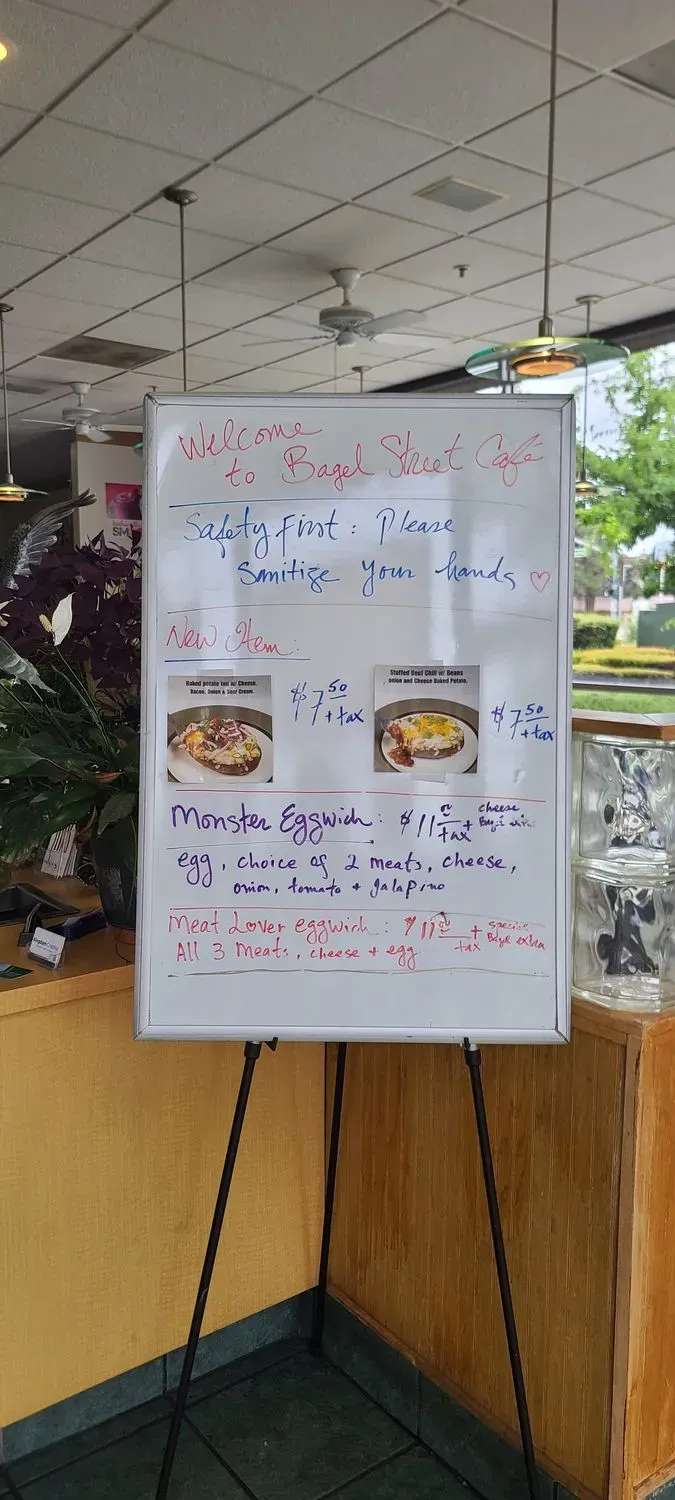 Welcome
to Bagel Street Café
Safety First: Please
Sanitize your hands ♡
New Item:
Baked potato full w/ Cheese,
Bacon, Onion & Sour Cream.
$7.50
+ tax
Stuffed Beef Chili w/ Beans
, onion and Cheese Baked Potato.
$7.50
+ tax
Monster Eggwich: $11 + tax
cheese
Bagel
egg, choice of 2 meats, cheese,
onion, tomato + Jalapino
Meat Lover eggwich: $11 tax +
Bagel extra
All 3 Meats, cheese + egg
SM